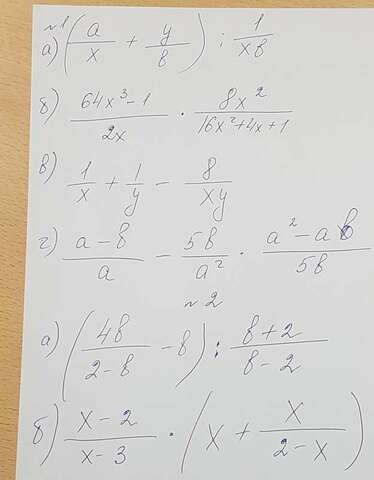 №1
а) (a/x + y/b) : 1/xb
б) 64x³-1/2x · 8x²/16x²+4x+1
в) 1/x + 1/y - 8/xy
г) a-b/a - 5b/a² · a²-ab/5b
№2
а) (4b/2-b - b) : b+2/b-2
б) x-2/x-3 · (x + x/2-x)